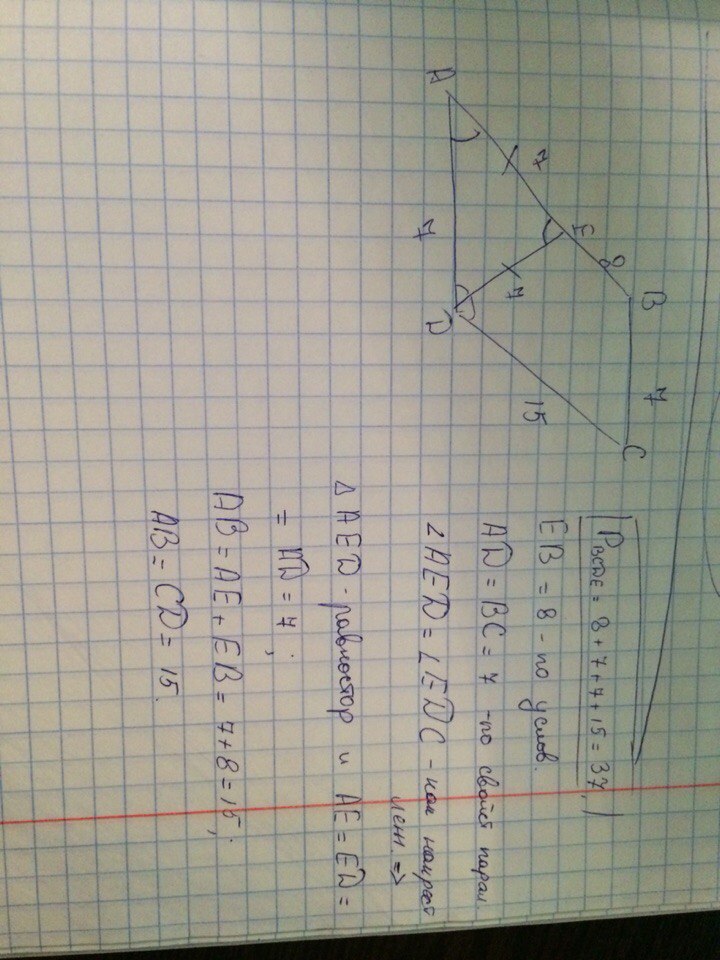 A
7
E
8
B
7
7
7
D
15
C
P BCDE = 8+7+7+15 = 37,
EB = 8 - по услов.
AD = BC = 7 - по свойст парал.
∠AED = ∠EDC - как накрест
леж. =>
△ AED - равностор и AE = ED =
= AD = 7;
AB = AE + EB = 7+8 = 15;
AB = CD = 15.